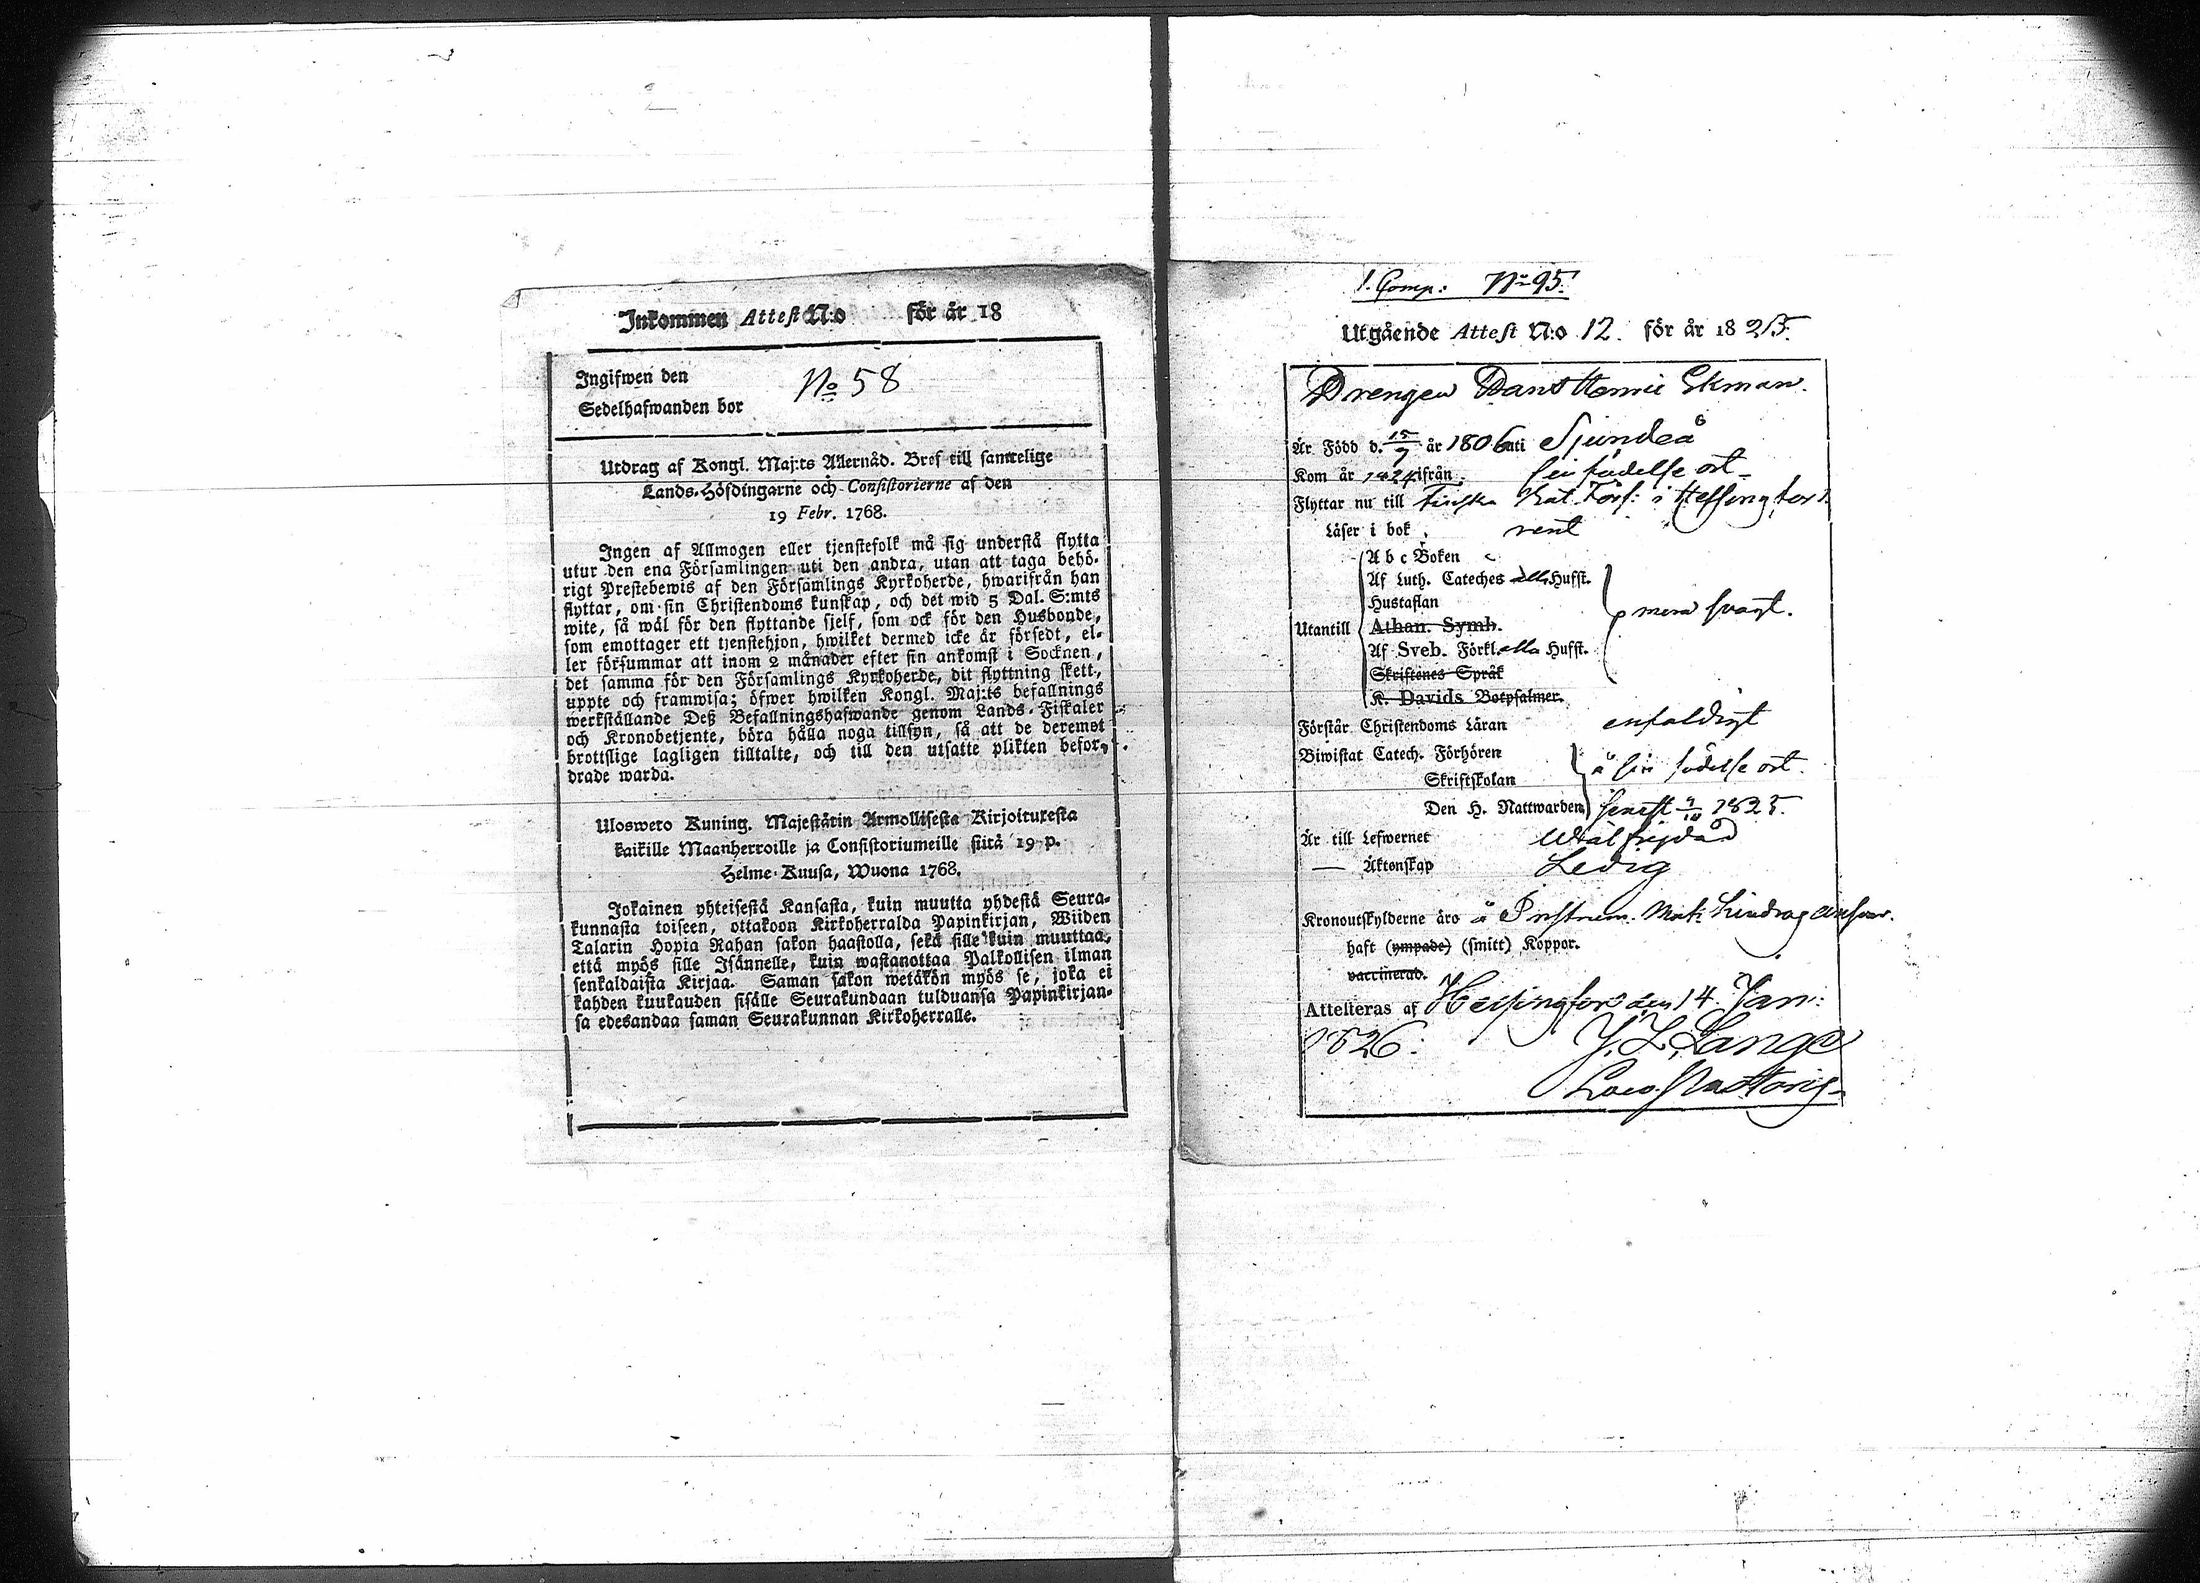 Inkommen Attest N:o för år 18
Ingifwen den
No 58
Sedelhafwanden bor
Utdrag af Kongl. Maj:ts Allernåd. Bref till samtelige
Lands-Höfdingarne och Consistorierne af den
19 Febr. 1768.
Ingen af Allmogen eller tjenstefolk må sig understå flytta
utur den ena Församlingen uti den andra, utan att taga behö-
rigt Prestebewis af den Församlings Kyrkoherde, hwarifrån han
flyttar, om sin Christendoms kunskap, och det wid 5 Dal. S:mts
wite, så wäl för den flyttande sjelf, som ock för den Husbonde,
som emottager ett tjenstehjon, hwilket dermed icke är försedt, el-
ler försummar att inom 2 månader efter sin ankomst i Socknen,
det samma för den Församlings Kyrkoherde, dit flyttning skett,
uppte och framwisa; öfwer hwilken Kongl. Maj:ts befallnings
werkställande Deß Befallningshafwande genom Lands-Fiskaler
och Kronobetjente, böra hålla noga tillsyn, så att de deremot
brottslige lagligen tilltalte, och till den utsatte plikten befor-
drade warda.
Ulosweto Kuning. Majestätin Armollisesta Kirjoituresta
kaikille Maanherroille ja Consistoriumeille siitä 19 p.
Helme-Kuusa, Wuona 1768.
Jokainen yhteisestä Kansasta, kuin muutta yhdestä Seura-
kunnasta toiseen, ottakoon Kirkoherralda Papinkirjan, Wiiden
Talarin Hopia Rahan sakon haastolla, sekä sille kuin muuttaa,
että myös sille Isännelle, kuin wastanottaa Palkollisen ilman
senkaldaista Kirjaa. Saman sakon wetäkön myös se, joka ei
kahden kuukauden sisälle Seurakundaan tulduansa Papinkirjan-
sa edesandaa saman Seurakunnan Kirkoherralle.
1. Comp: No 95.
Utgående Attest N:o 12. för år 1825.
Drengen Ekman.
Är Född d. 15/7 år 1806 uti Sjundeå
Kom år 1824 ifrån sin födelse ort
Flyttar nu till Finska Förs: i Helsingfors.
Läser i bok rent
A b c Boken
Af Luth. Cateches alla Hufst.
Hustaflan
mera svagt.
Utantill Athan. Symb.
Af Sveb. Förkl. alla Hufst.
Skriftenes Språk
K. Davids Botpsalmer.
Förstår Christendoms Läran enfaldigt
Biwistat Catech. Förhören
å sin födelse ort.
Skriftskolan
Den H. Nattwarden senast 1825.
Är till Lefwernet wälfrejdad
— Äktenskap Ledig
Kronoutskylderne äro å
haft (ympade) (smitt) Koppor.
vaccinerad.
Attesteras af Helsingfors den 14 Jan:
1826. Lange